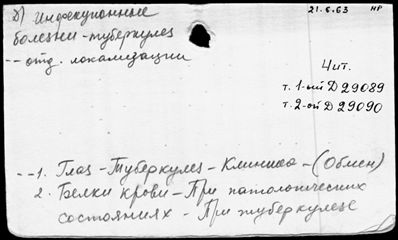 Д) Инфекционные
21.6.63 НР
болезни - туберкулез
-- отд. локализации
Чит.
т. 1-ый Д 29089
т. 2-ой Д 29090
-- 1. Глаз - Туберкулез - Клиника - (Обмен)
2. Белки крови - При патологических
состояниях - При туберкулезе